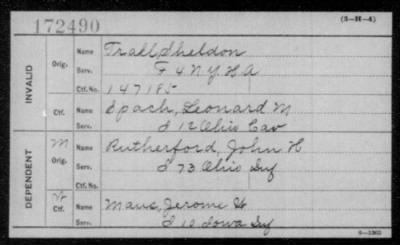 172490
(3-H-4)
INVALID
Orig.
Name Trall Sheldon
Serv. F 4 N.Y. H A
Ctf. No. 147185
Ctf.
Name Spach, Leonard M
Serv. I 12 Ohio Cav
DEPENDENT
M
Orig.
Name Rutherford, John H
Serv. I 73 Ohio Inf
Ctf. No.
Ctf.
Name Maus, Jerome
Serv. I 10 Iowa Inf